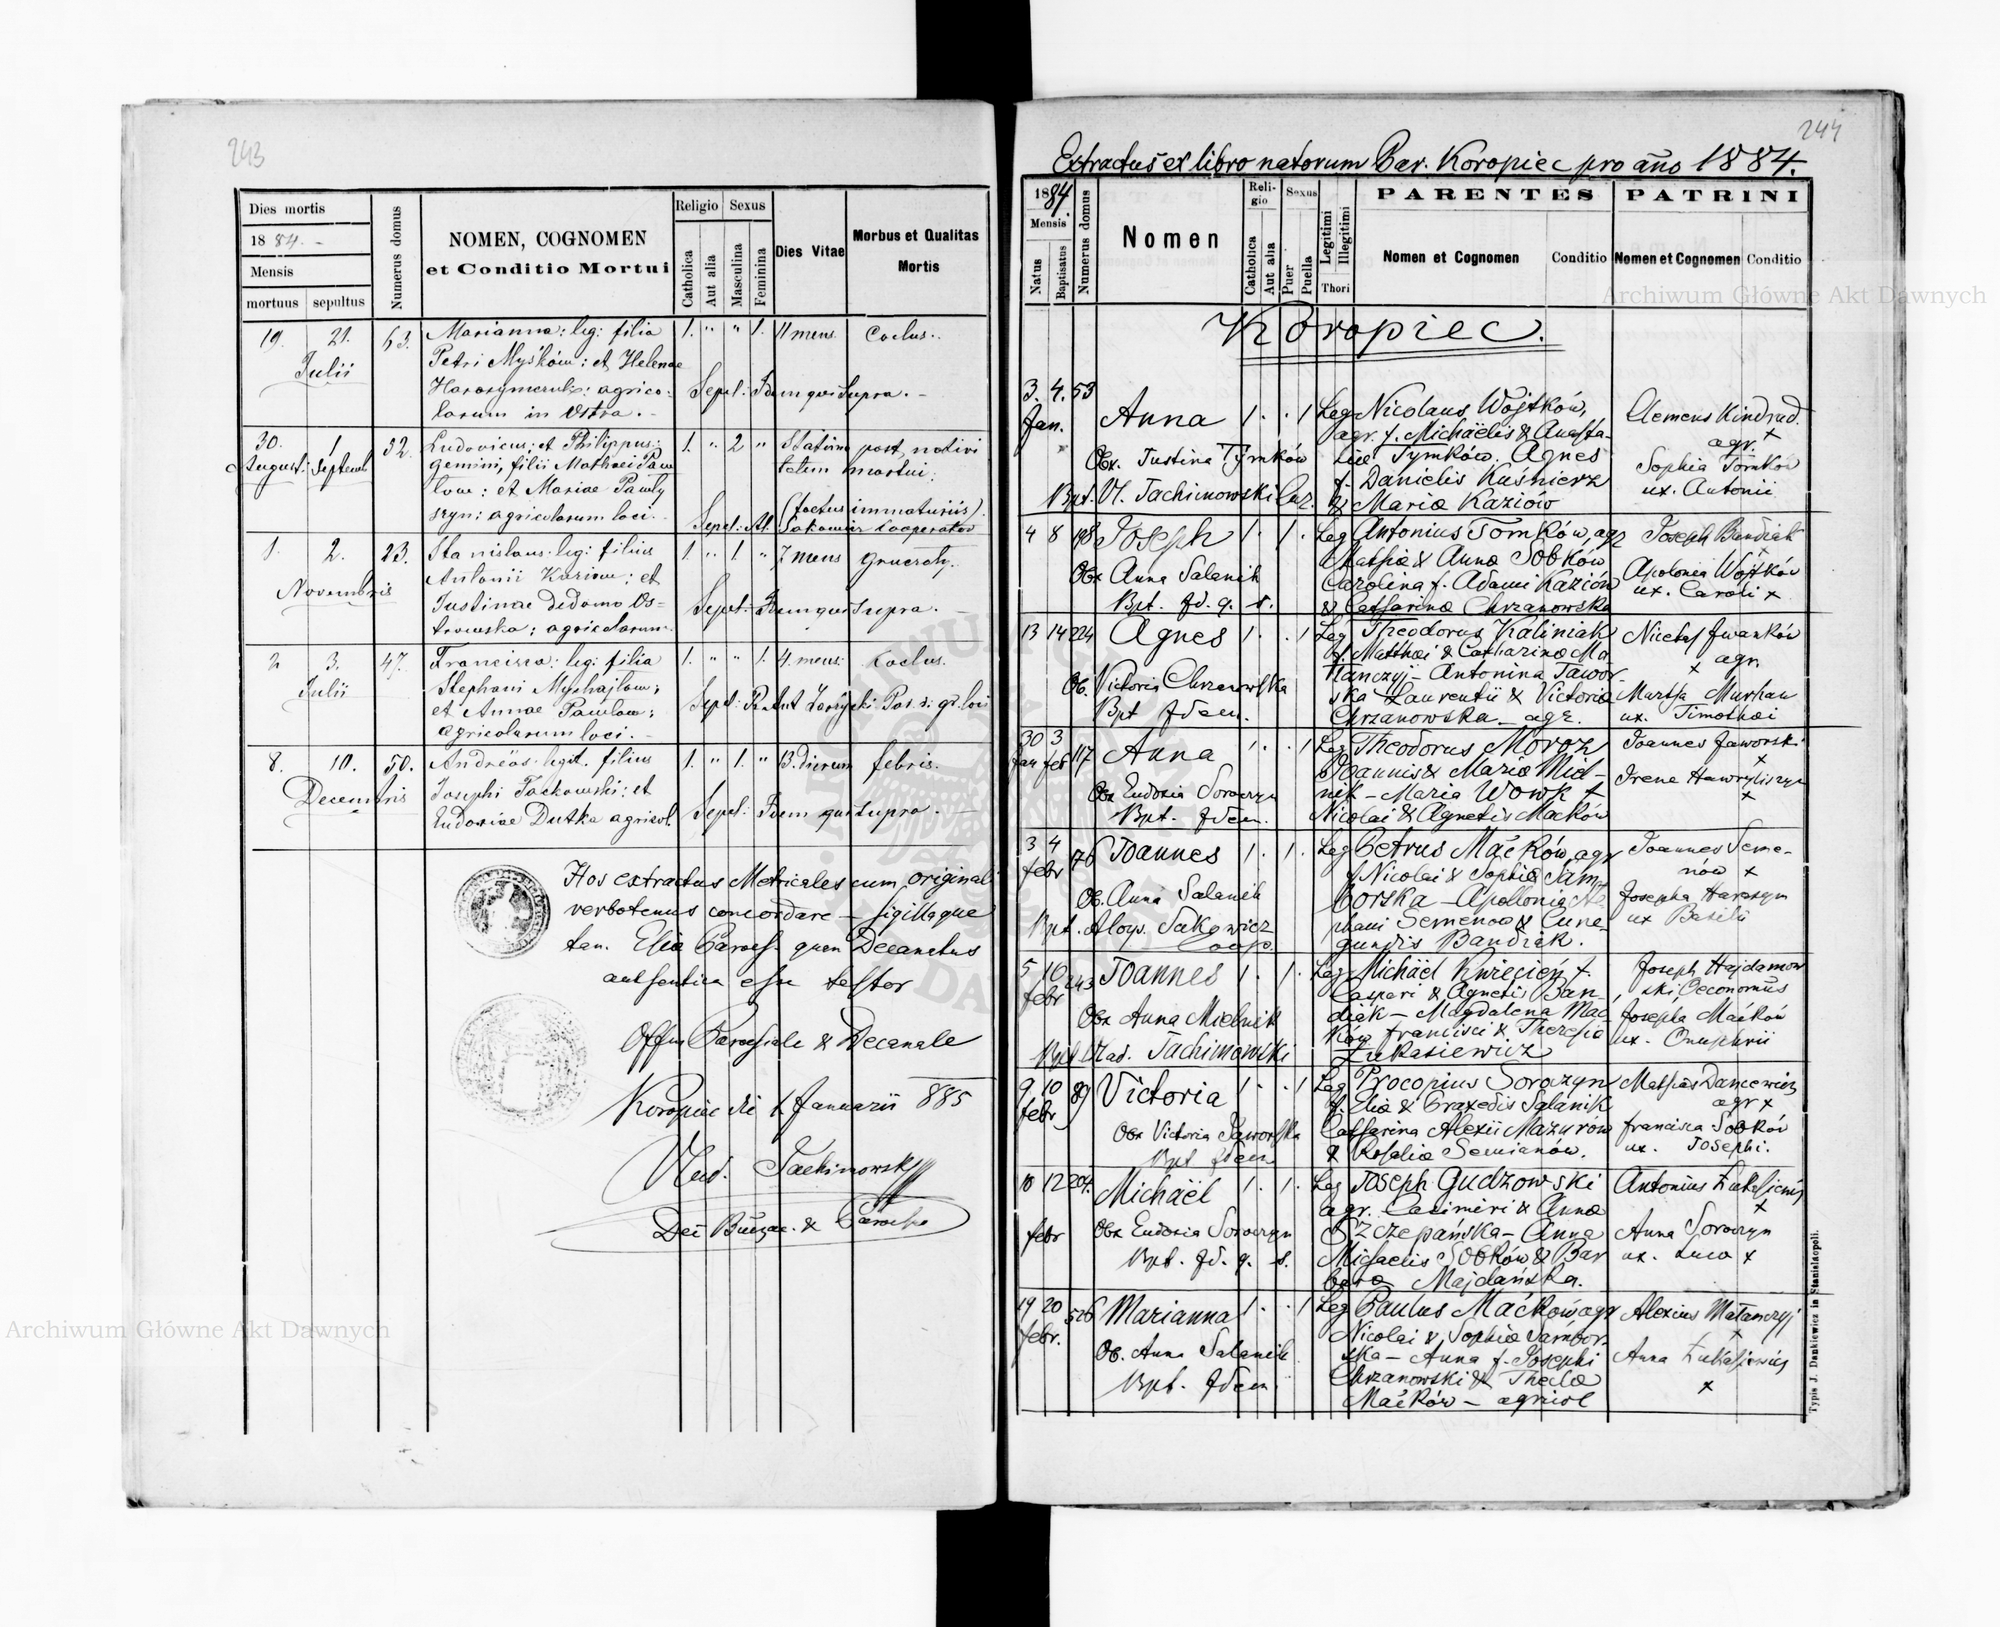 243
Dies mortis
1884. -
Mensis
mortuus sepultus
Numerus domus
NOMEN, COGNOMEN
et Conditio Mortui
Religio Sexus
Catholica
Aut alia
Masculina
Feminina
Dies Vitae
Morbus et Qualitas
Mortis
19. 21. 63. Marianna: leg: filia 1. " " 1. 11 mens Coclus.
Julii Petri Myśków: et Helenae
agrico: Sepel: Idem qui Supra. -
larum in Ostra. -
30. 1 52. Ludovicus: et Philippus: 1. " 2 " Statim post nativi
August: Septemb gemini, filii Mathaei Paw tatem mortui.
low: et Mariae Pawly (foetus immaturus).
szyn: agricolarum loci. Sepel: Al. Sakowicz Cooperator
1. 2. 23. Stanislaus: leg: filius 1. " 1. " 7 mens
Novembris Antonii et
Justinae dedomo Os- Sepel: Idem qui Supra. -
trowska: agricolarum.
2 3. 47. Francisca: leg: filia 1. " " 1. 4. mens: Coclus.
Julii Stephani Myhajlow:
et Annae Pawlow: Sepel: gr. loci
agricolarum loci. -
8. 10. 50. Andreas: legit. filius 1. " 1. " 13. dierum febris.
Decembris Josephi Tackowski: et
Eudoxiae Dutka agricol. Sepel: Idem qui Supra. -
Hos extractus Metricales cum originali
verbotenus concordare - sigillaque
tam Paroch. quam Decanatus
authentica esse testor
Offm Parochiale & Decanale
Koropiec die 1 Januarii 885
Vlad. Tachimowski
Parochus
244
Extractus ex libro natorum Par. Koropiec pro año 1884.
1884
Mensis
Natus
Baptisatus
Numerus domus
Nomen
Religio
Catholica
Aut alia
Sexus
Puer
Puella
Legitimi
Illegitimi
Thori
PARENTES
Nomen et Cognomen Conditio
PATRINI
Nomen et Cognomen Conditio
Koropiec.
3. 4. 53
Jan. Anna 1 . . 1 Leg Nicolaus Wojtków, Clemens Kindrad.
agr. f. Michaëlis & Anasta- agr. x
Obx. Justina Tymków siæ Tymków. Agnes Sophia Tomków
f. Danielis Kuśnierz ux. Antonii
Bpt. Vl. Tachimowski Cur. & Mariæ Kaziów
4 8 198 Joseph 1 . 1 . Leg Antonius Tomków, agr Joseph Bandiak
Mathiæ & Annæ Sobków x
Obx Anna Salanik Carolina f. Adami Kaziów Apolonia Wojtków
Bpt. Id. q. s. & Catharinæ Chrzanowska ux. Caroli x
13 14 224 Agnes 1 . . 1 Leg Theodorus Kaliniak Nicetas Iwanków
f. Matthæi & Catharinæ Ma x agr.
Ob. Victoria Chrzanowska łanczyj - Antonina Jawor-
ska Laurentii & Victoriæ Martha Murhan
Bpt Idem. Chrzanowska - agr. ux. Timothæi
30 3
Jan febr 117 Anna 1 . . 1 Leg Theodorus Moroz Joannes Jaworski
Joannis & Mariæ Miel- x
Obx Eudoxia Soroczyn nik - Maria Wowk f Irena Hawryliszyn
Bpt. Idem. Nicolai & Agnetis Maćków x
3 4 176 Joannes 1 . 1 . Leg Petrus Maćków, agr Joannes Seme-
febr f Nicolai & Sophiæ Sam- nów x
Ob. Anna Salanik borska - Apollonia Ste Josepha Harasym
Bpt. Aloys. Sakowicz phani Semenow & Cune- ux Basilii
coop. gundis Bandiak.
5 10 243 Joannes 1 . 1 . Leg Michaël Kwiecień f. Joseph Hajdamow
febr Caspari & Agnetis Ban- ski Oeconomus
Obx Anna Mielnik diak - Magdalena Mać- Josepha Maćków
ków Francisci & Theresiæ ux. Onuphrii
Bpt Vlad. Tachimowski Łukasiewicz
9 10 89 Victoria 1 . . 1 Leg Procopius Soroczyn Mathias Dancewicz
febr f. Eliæ & Praxedis Salanik agr x
Obx Victoria Jaworska Catharina Alexii Mazurów Francisca Sobków
Bpt Idem & Rosaliæ Semianów. ux. Josephi.
10 12 204. Michäel 1 . 1 . Leg Joseph Gudzowski Antonius Łukasiewicz
agr. Casimiri & Annæ x
febr Obx Eudoxia Soroczyn Szczepańska - Anna Anna Soroczyn
Bpt. Id. q. s. Michaelis Sobków & Bar ux. Lucæ x
baræ Majdańska.
19 20 526 Marianna 1 . . 1 Leg Paulus Maćków agr Alexius Małanczyj
febr. Nicolai & Sophiæ Sambor- x
Ob. Anna Salanik ska - Anna f. Josephi Anna Łukasiewicz
Bpt. Idem Chrzanowski & Theclæ x
Maćków - agricol
Typis J. Dankiewicz in Stanislaopoli.
Archiwum Główne Akt Dawnych
Archiwum Główne Akt Dawnych